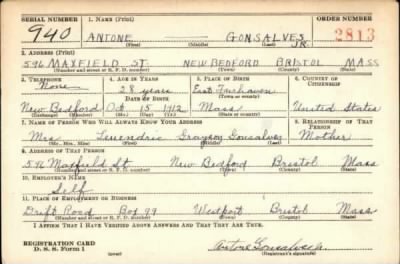 SERIAL NUMBER 1. NAME (Print) ORDER NUMBER
940 ANTONE GONSALVES JR. 2813
(First) (Middle) (Last)
2. ADDRESS (Print)
596 MAXFIELD ST. NEW BEDFORD BRISTOL MASS
(Number and street or R. F. D. number) (Town) (County) (State)
3. TELEPHONE 4. AGE IN YEARS 5. PLACE OF BIRTH 6. COUNTRY OF CITIZENSHIP
None 28 years East Fairhaven
DATE OF BIRTH (Town or county)
New Bedford Oct 15 1912 Mass United States
(Exchange) (Number) (Mo.) (Day) (Yr.) (State or country)
7. NAME OF PERSON WHO WILL ALWAYS KNOW YOUR ADDRESS 8. RELATIONSHIP OF THAT PERSON
Mrs Grayson Gonsalves Mother
(Mr., Mrs., Miss) (First) (Middle) (Last)
9. ADDRESS OF THAT PERSON
596 Maxfield St New Bedford Bristol Mass
(Number and street or R. F. D. number) (Town) (County) (State)
10. EMPLOYER'S NAME
Self
11. PLACE OF EMPLOYMENT OR BUSINESS
Drift Road Box 99 Westport Bristol Mass
(Number and street or R. F. D. number) (Town) (County) (State)
I AFFIRM THAT I HAVE VERIFIED ABOVE ANSWERS AND THAT THEY ARE TRUE.
REGISTRATION CARD
D. S. S. Form 1 (over) (Registrant's signature)